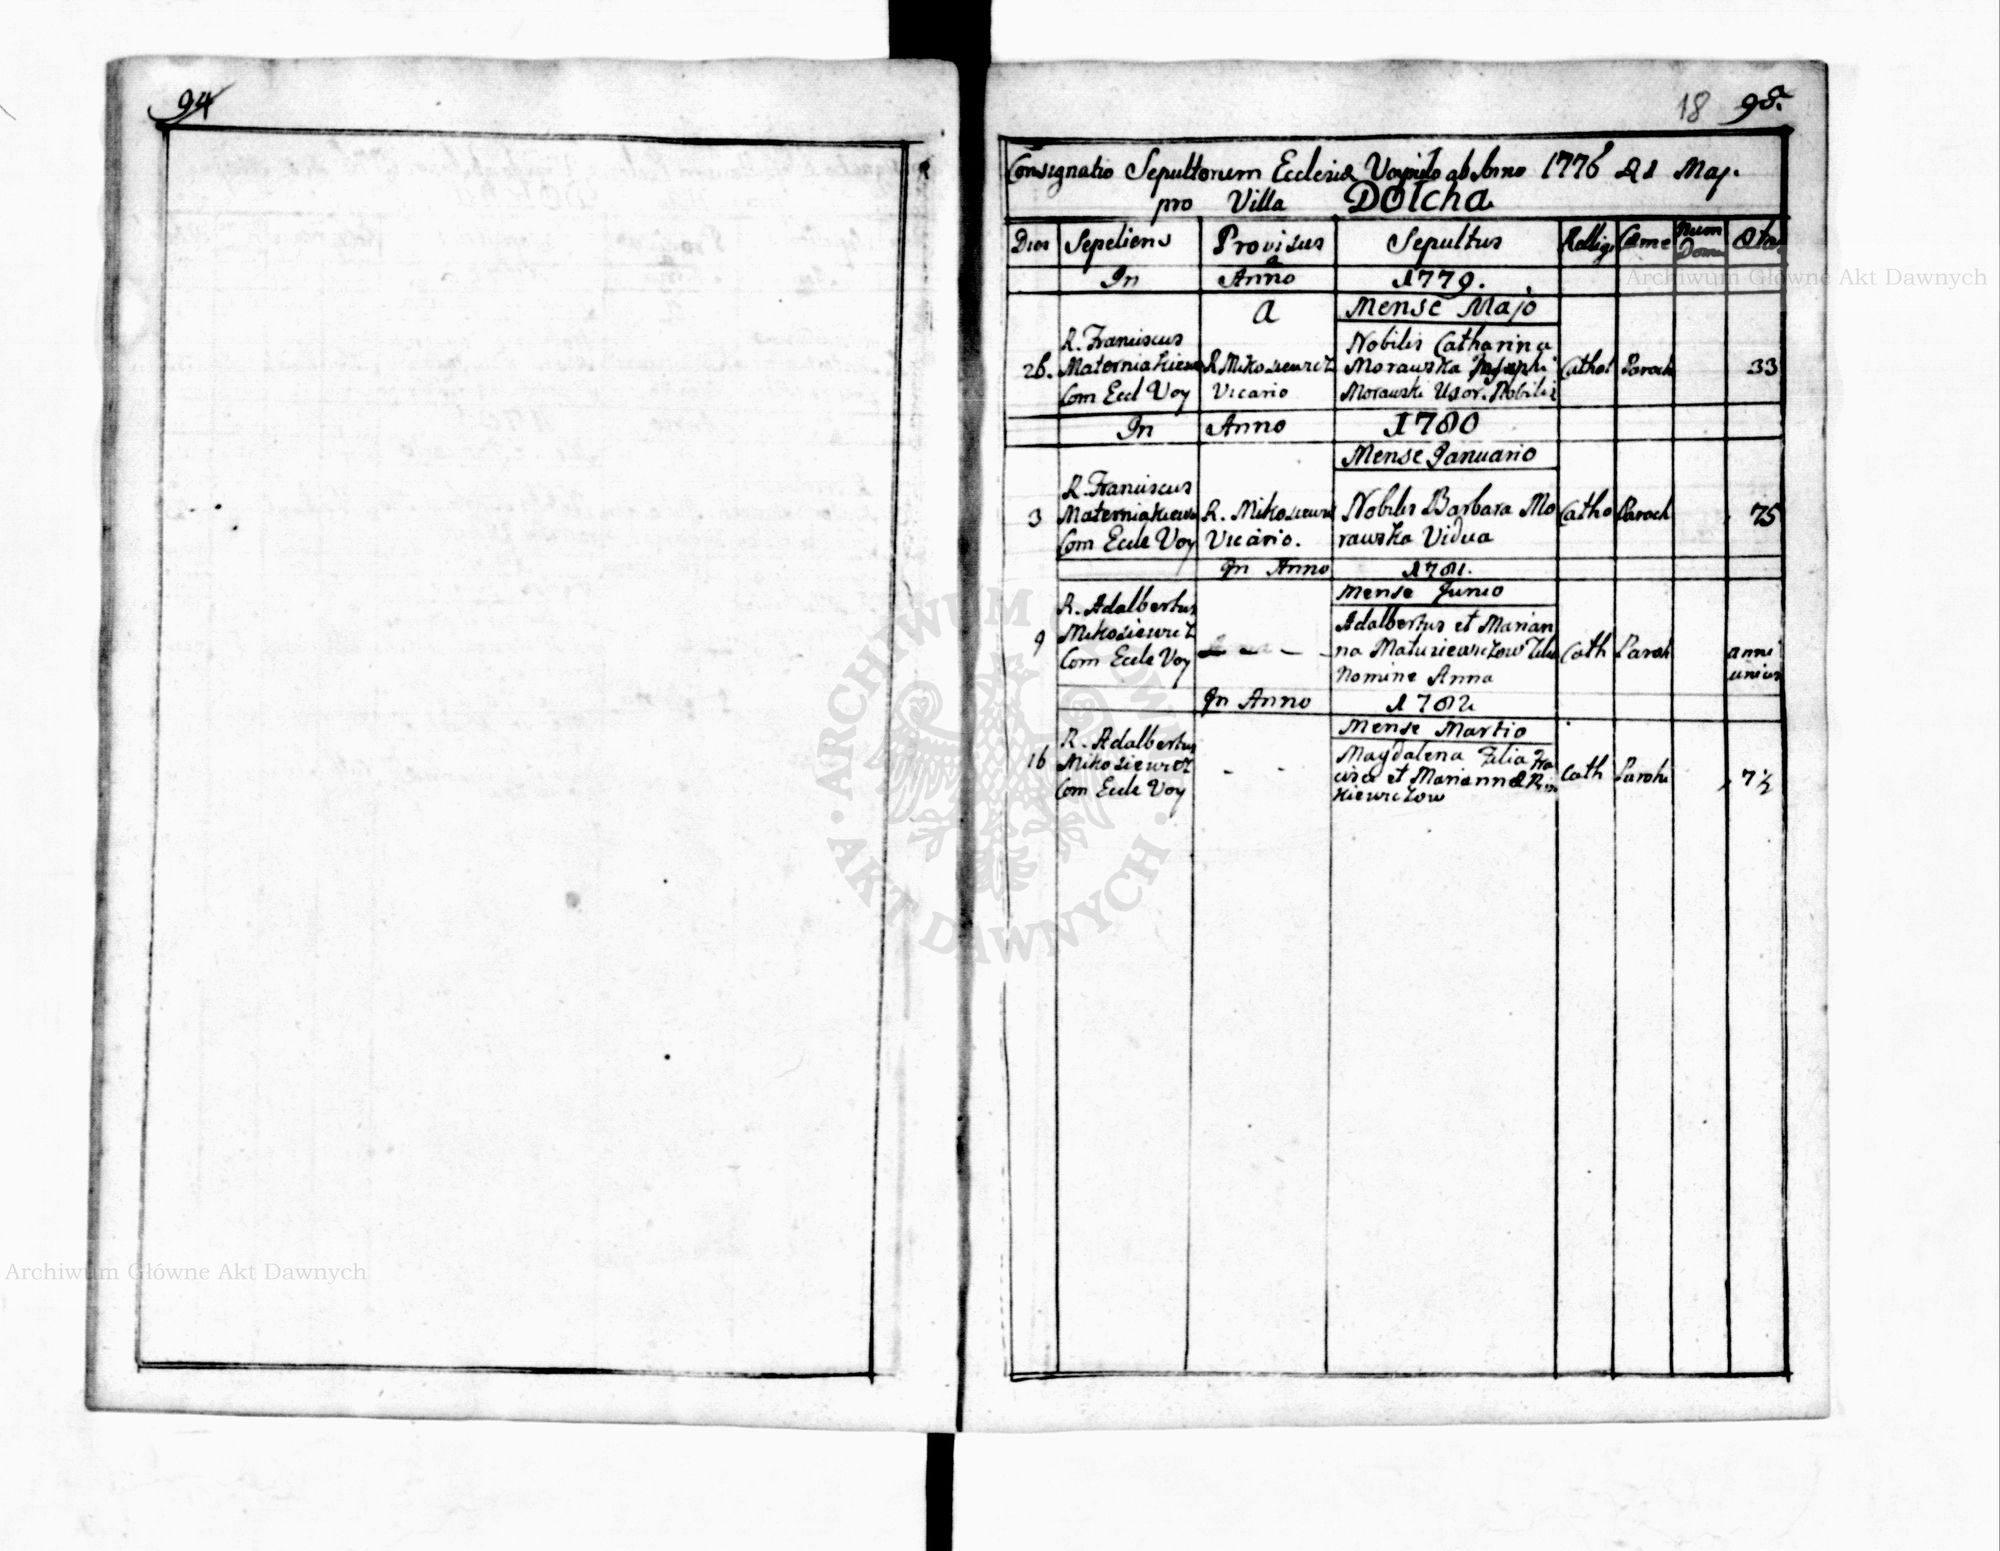 94
18 95.
Consignatio Sepultorum Ecclesiæ ab Anno 1776 Maj.
pro Villa Dolcha
Dies Sepeliens Provisus Sepultus Relligi Cæme Num Ætas
a Dom
In Anno 1779.
a Mense Majo
R. Franciscus Nobilis Catharina
26. Materniakiewi R. Mikosiewicz Morawska Josephi Cathol Paroch 33
Com Eccl Voy Vicario Morawski Uxor. Nobilis
In Anno 1780
Mense Januario
R. Franciscus
3 Materniakiewi R. Mikosiewic Nobilis Barbara Mo Catho Paroch 75
Com Eccle Voy Vicario. rawska Vidua
In Anno 1781.
Mense Junio
R. Adalbertus Adalbertus et Marian
9 Mikosiewicz na Matusiewiczow Cath Paroh anni
Com Eccle Voy Nomine Anna unius
In Anno 1782
Mense Martio
R. Adalbertus Magdalena Filia Fra
16 Mikosiewicz - - cisci et Mariannæ Cath Paroh 7½
Com Eccle Voy kiewiczow
Archiwum Główne Akt Dawnych
ARCHIWUM GŁÓWNE AKT DAWNYCH
Archiwum Główne Akt Dawnych